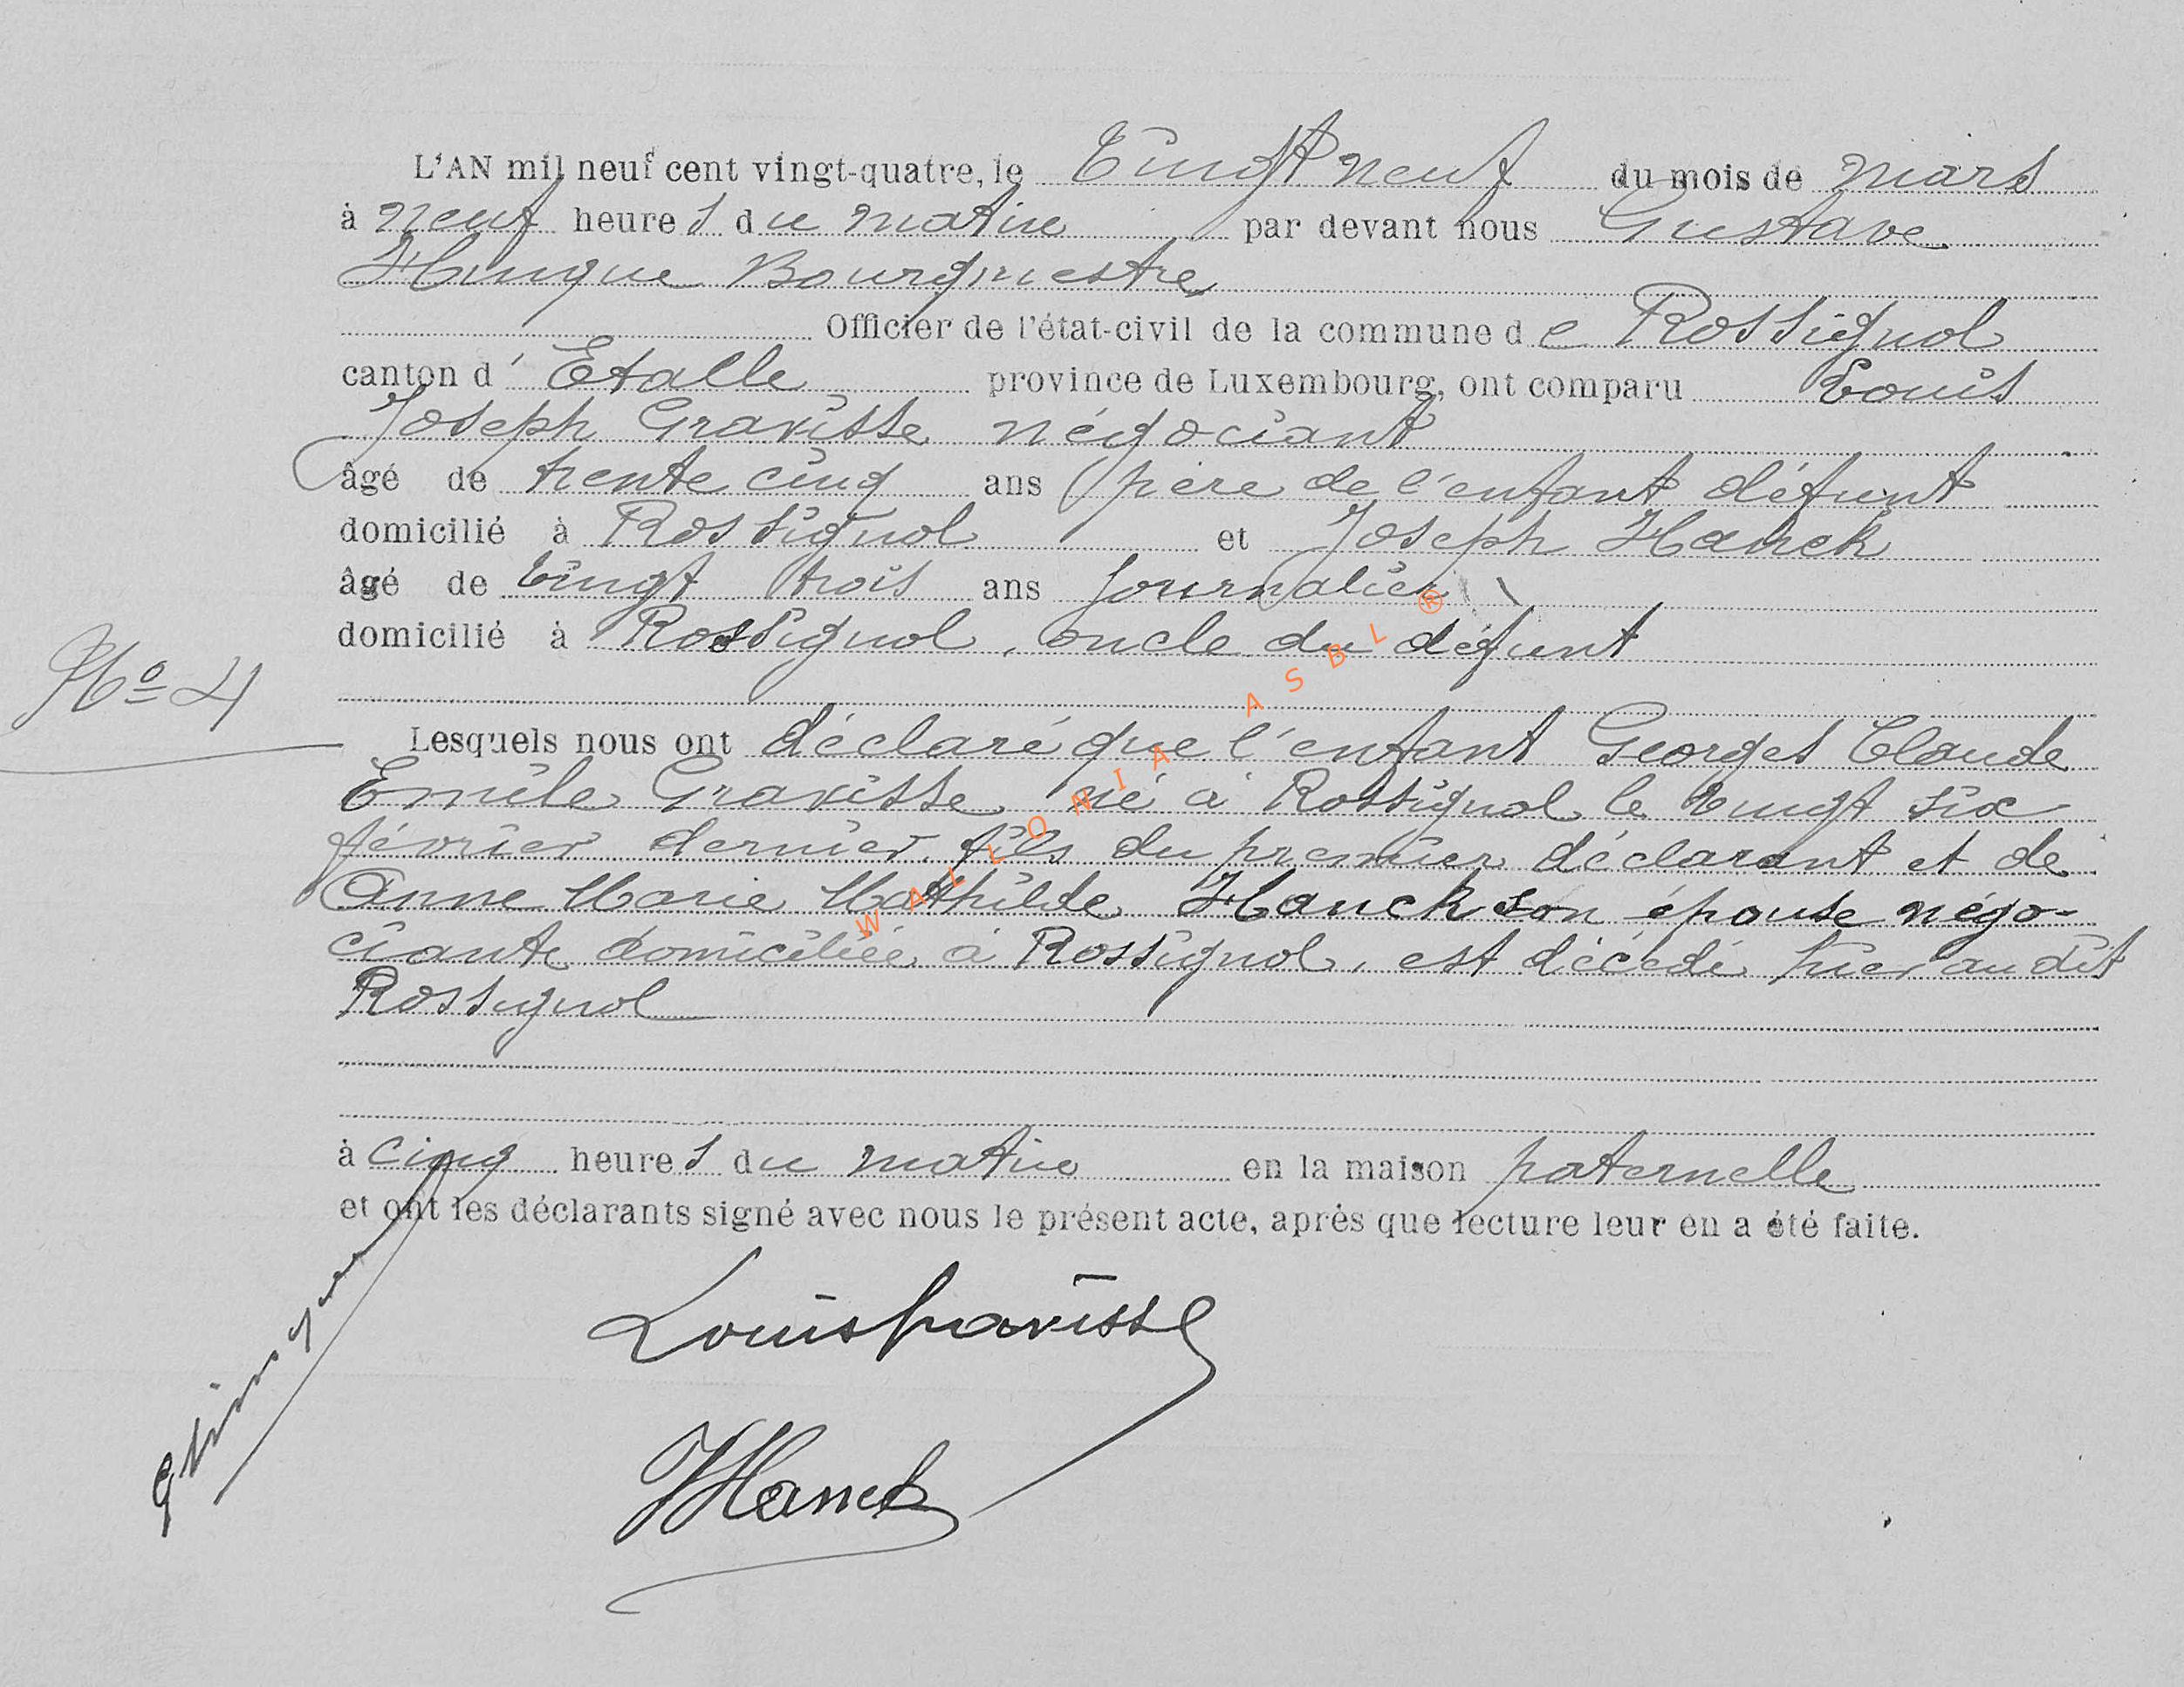 L'AN mil neuf cent vingt-quatre, le Vingt neuf du mois de mars
à neuf heures du matin par devant nous Gustave
Hinque Bourgmestre
Officier de l'état-civil de la commune de Rossignol
canton d'Etalle province de Luxembourg, ont comparu Louis
Joseph Gravisse négociant
âgé de trente cinq ans père de l'enfant défunt
domicilié à Rossignol et Joseph Hanck
âgé de vingt trois ans journalier
domicilié à Rossignol, oncle du défunt
N° 4
Lesquels nous ont déclaré que l'enfant Georges Claude
Emile Gravisse né à Rossignol le vingt six
février dernier, fils du premier déclarant et de
Anne Marie Mathilde Hanck son épouse négo-
ciante domiciliée à Rossignol, est décédé hier au dit
Rossignol
à cinq heures du matin en la maison paternelle
et ont les déclarants signé avec nous le présent acte, après que lecture leur en a été faite.
Louis Gravisse
JHanck
WALLONIA ASBL ®